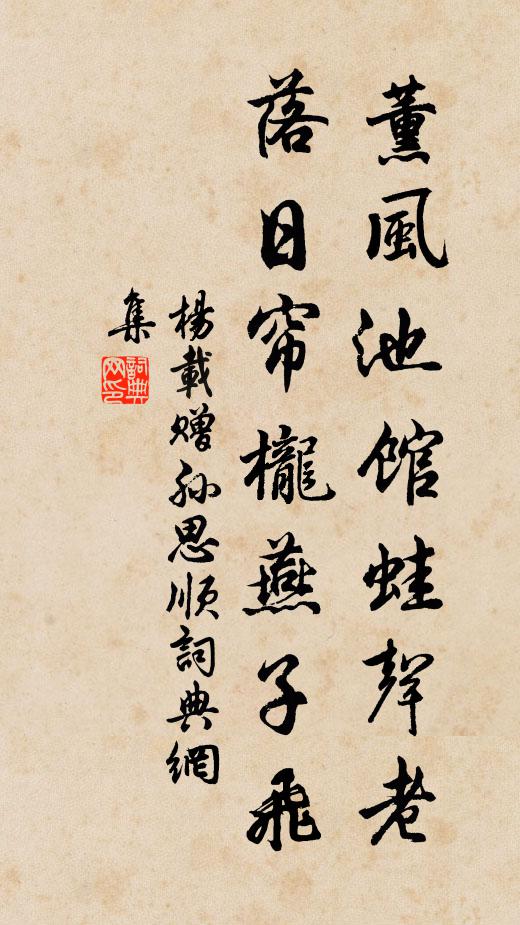 薰風池館蛙聲老
落日帘櫳燕子飛
楊載贈孫思順詞典網
集
詞典
网印